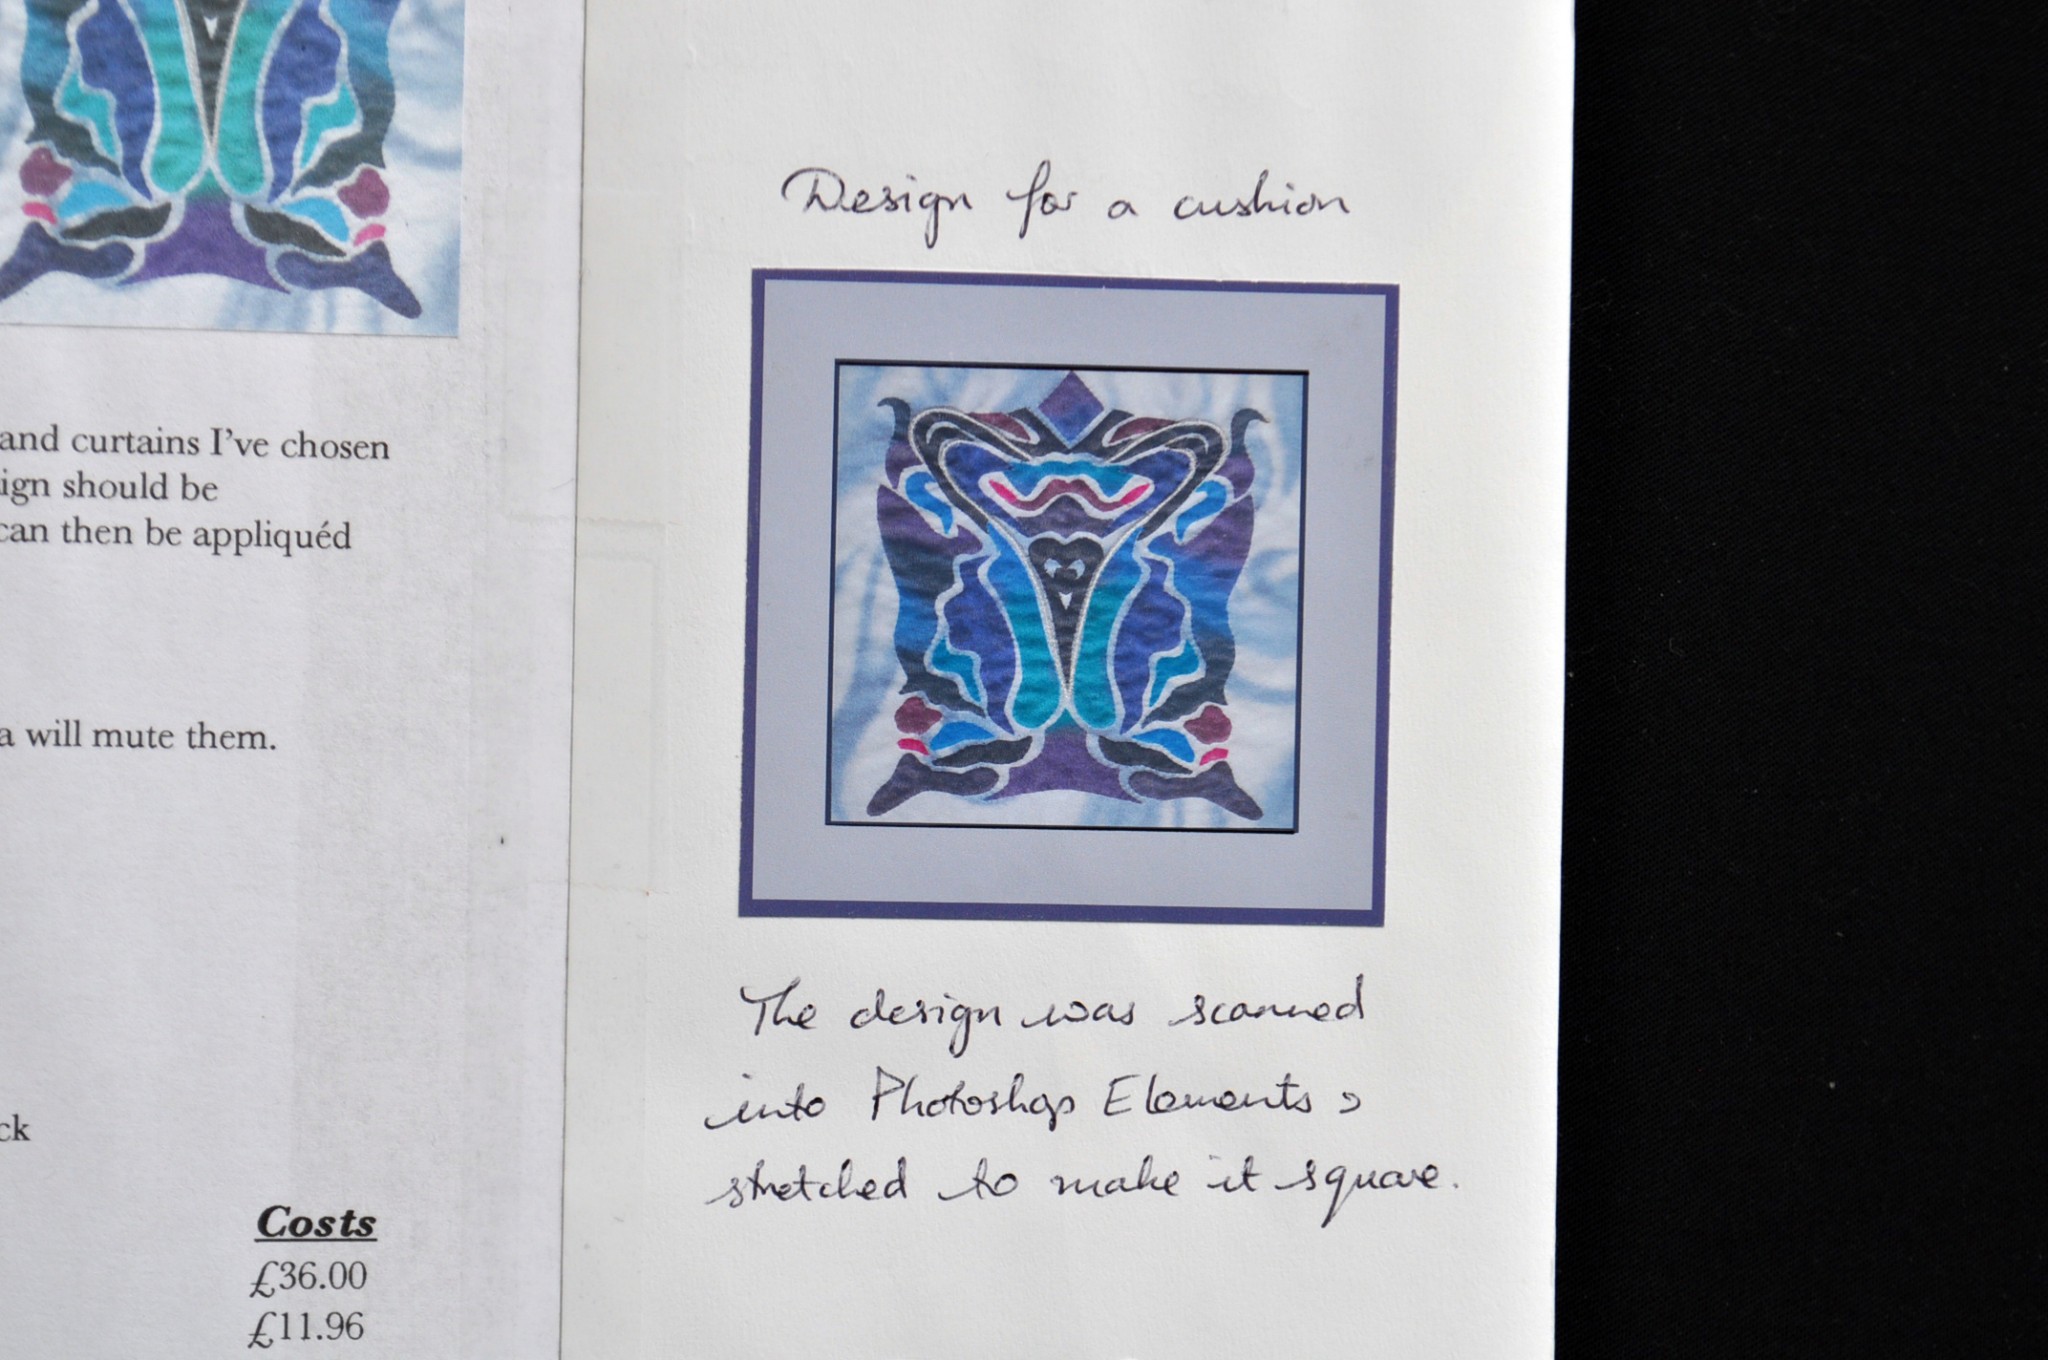 and curtains I've chosen
ign should be
can then be appliquéd
a will mute them.
ck
Costs
£36.00
£11.96
Design for a cushion
The design was scanned
into Photoshop Elements,
stretched to make it square.